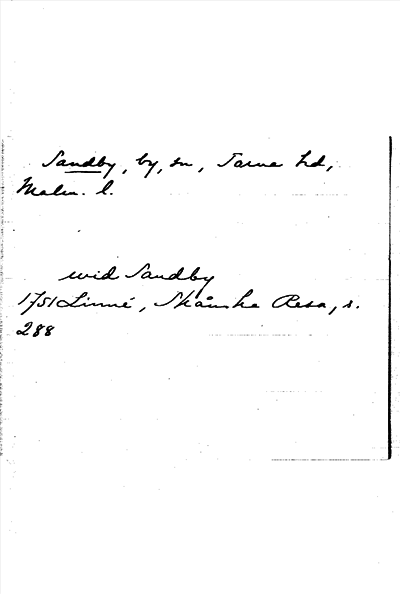 Sandby, by, sn, Torna hd,
Malm. l.
wid Sandby
1751 Linné, Skånska Resa, s.
288